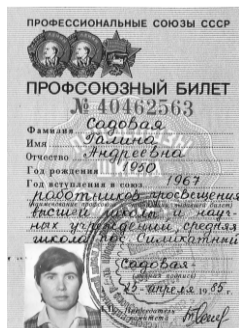 ПРОФЕССИОНАЛЬНЫЕ СОЮЗЫ СССР
ПРОФСОЮЗНЫЙ БИЛЕТ
№ 40462563
Фамилия Садовая
Имя Галина
Отчество Андреевна
Год рождения 1950
Год вступления в союз 1967
работников просвещения
высшей школы и науч-
ных учреждений, средняя
школа пос.
Садовая
25 апреля 1985 г.
Председатель
комитета